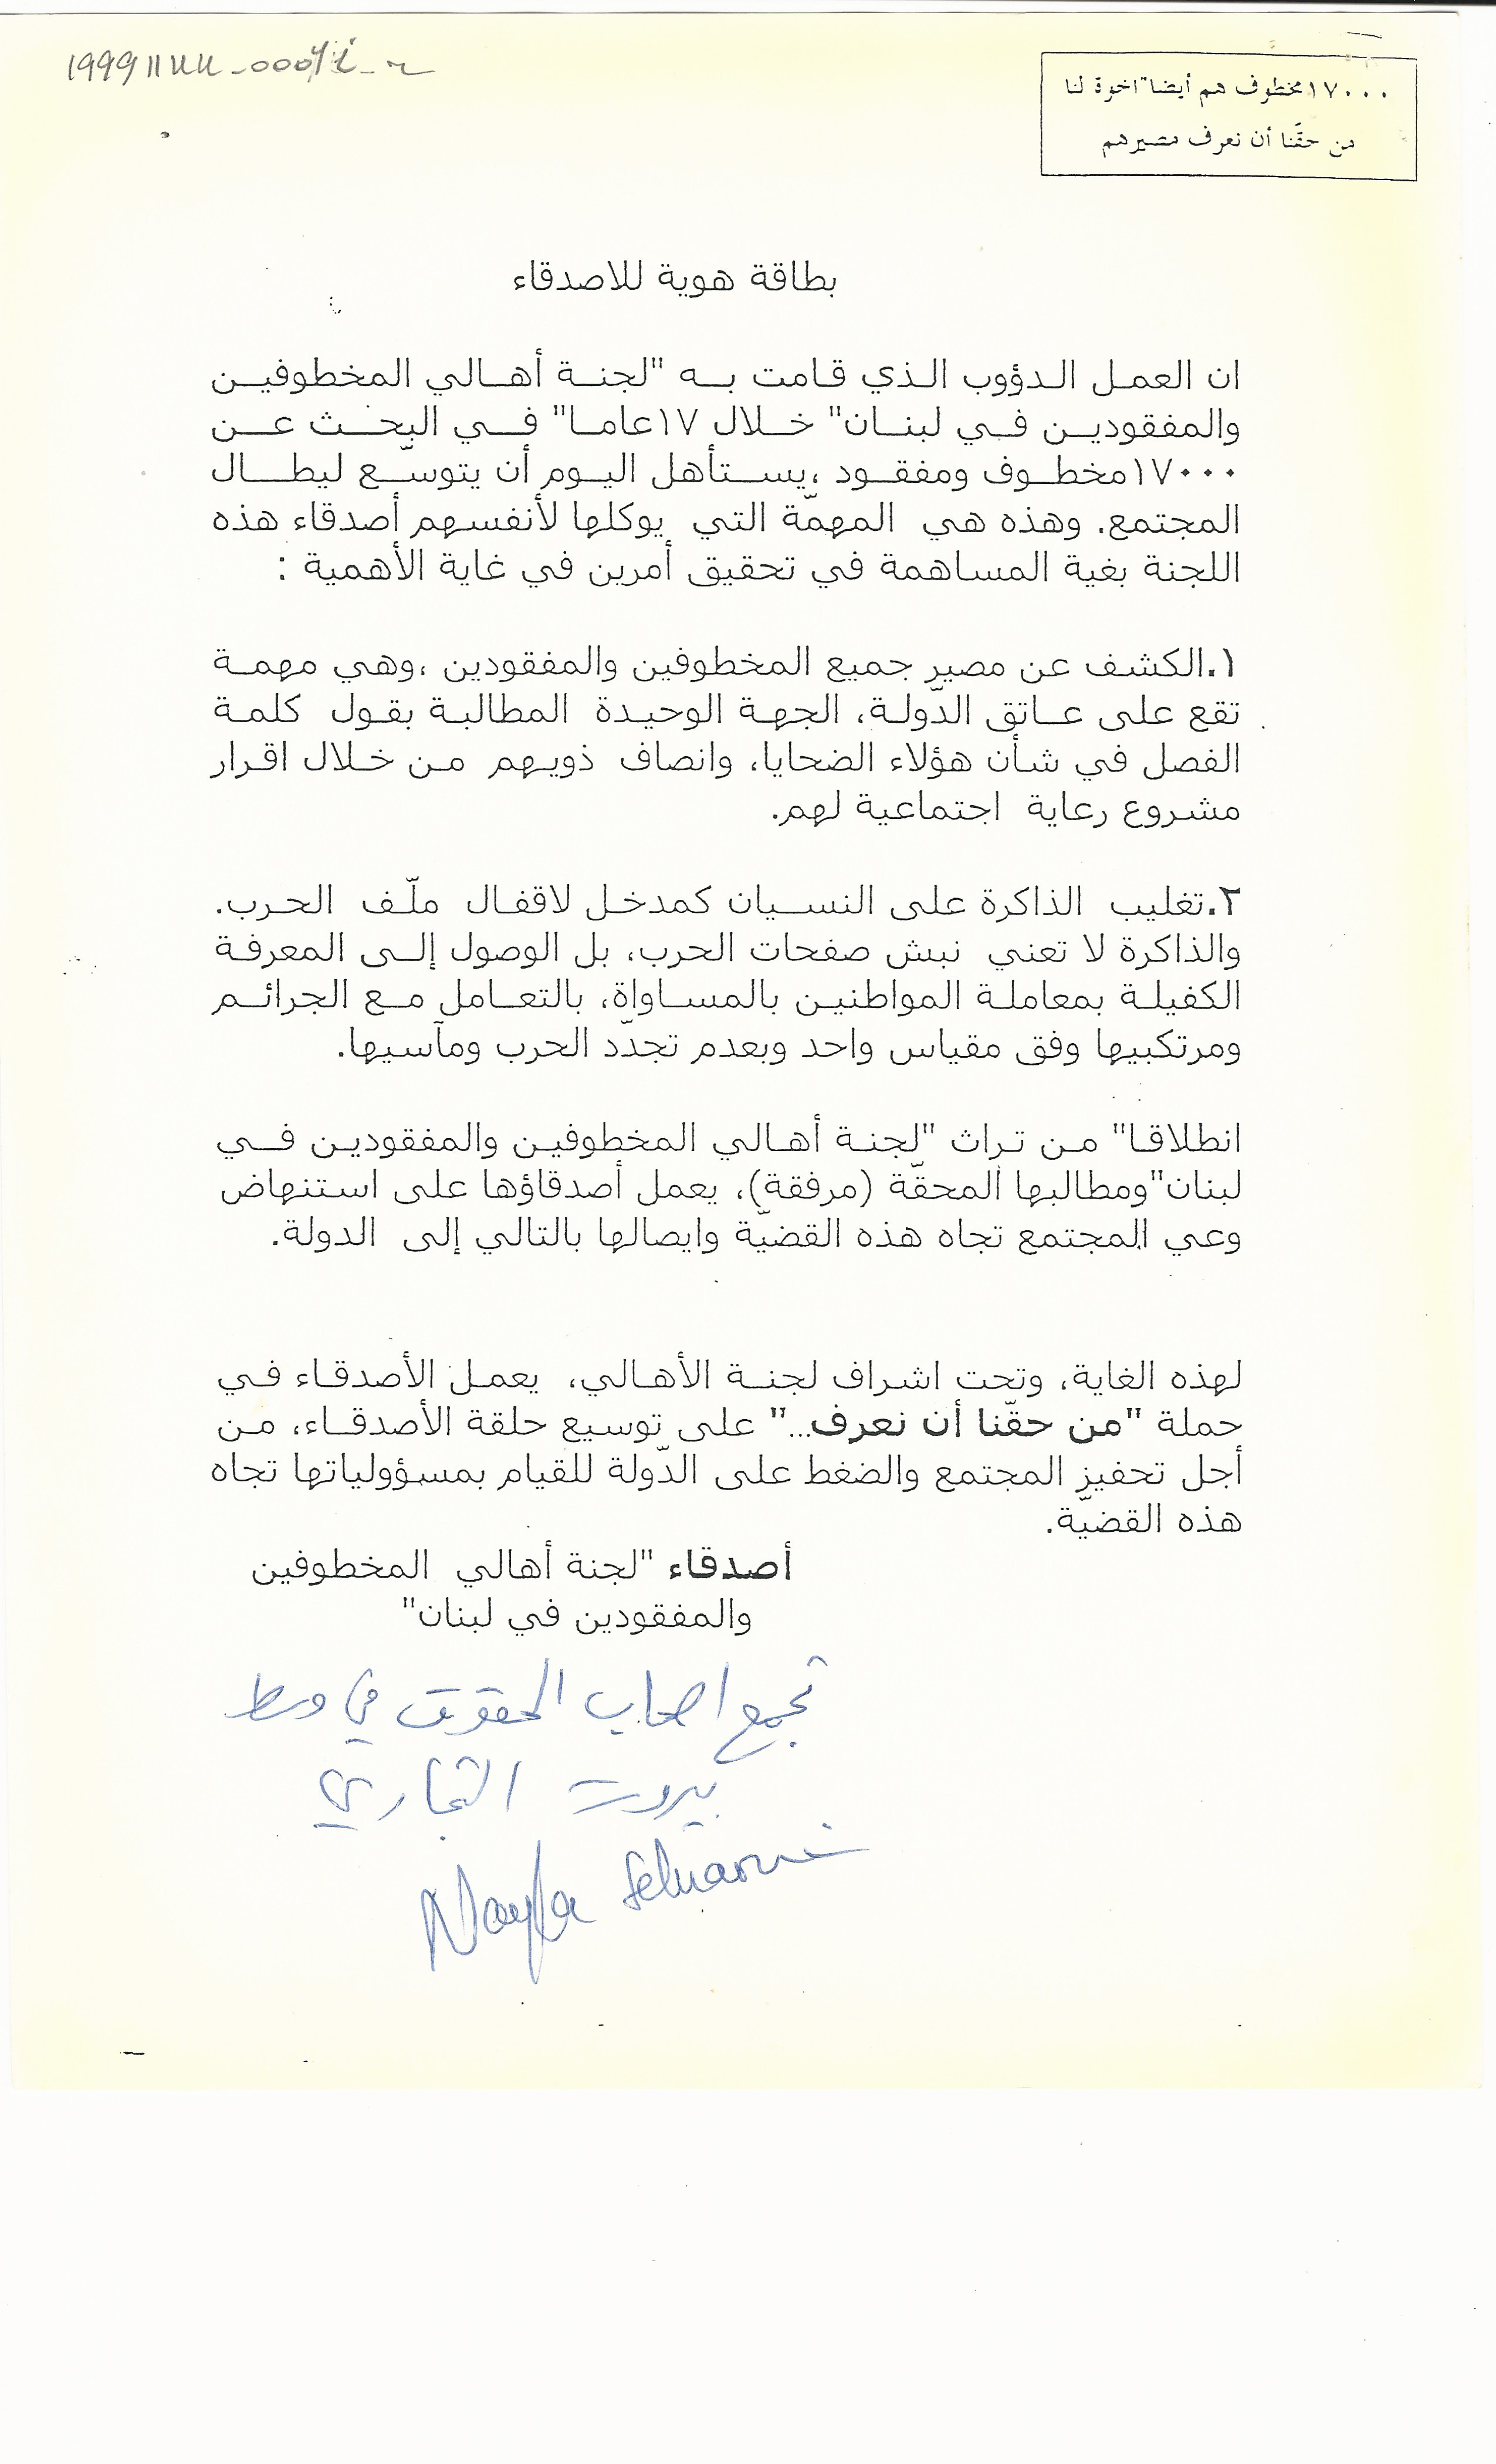 ١٧٠٠٠ مخطوف هم أيضا" اخوة لنا
من حقّنا أن نعرف مصيرهم
بطاقة هوية للاصدقاء
ان العمل الدؤوب الذي قامت به "لجنة أهالي المخطوفين
والمفقودين في لبنان" خلال ١٧عاما" في البحث عن
١٧٠٠٠مخطوف ومفقود ،يستأهل اليوم أن يتوسّع ليطال
المجتمع. وهذه هي المهمّة التي يوكلها لأنفسهم أصدقاء هذه
اللجنة بغية المساهمة في تحقيق أمرين في غاية الأهمية :
١.الكشف عن مصير جميع المخطوفين والمفقودين ،وهي مهمة
تقع على عاتق الدّولة، الجهة الوحيدة المطالبة بقول كلمة
الفصل في شأن هؤلاء الضحايا، وانصاف ذويهم من خلال اقرار
مشروع رعاية اجتماعية لهم.
٢.تغليب الذاكرة على النسيان كمدخل لاقفال ملّف الحرب.
والذاكرة لا تعني نبش صفحات الحرب، بل الوصول إلى المعرفة
الكفيلة بمعاملة المواطنين بالمساواة، بالتعامل مع الجرائم
ومرتكبيها وفق مقياس واحد وبعدم تجدّد الحرب ومآسيها.
انطلاقا" من تراث "لجنة أهالي المخطوفين والمفقودين في
لبنان"ومطالبها المحقّة (مرفقة)، يعمل أصدقاؤها على استنهاض
وعي المجتمع تجاه هذه القضيّة وايصالها بالتالي إلى الدولة.
لهذه الغاية، وتحت اشراف لجنة الأهالي، يعمل الأصدقاء في
حملة "من حقّنا أن نعرف..." على توسيع حلقة الأصدقاء، من
أجل تحفيز المجتمع والضغط على الدّولة للقيام بمسؤولياتها تجاه
هذه القضيّة.
أصدقاء "لجنة أهالي المخطوفين
والمفقودين في لبنان"
تجمع اصحاب الحقوق في وسط
بيروت التجاري
Nayla